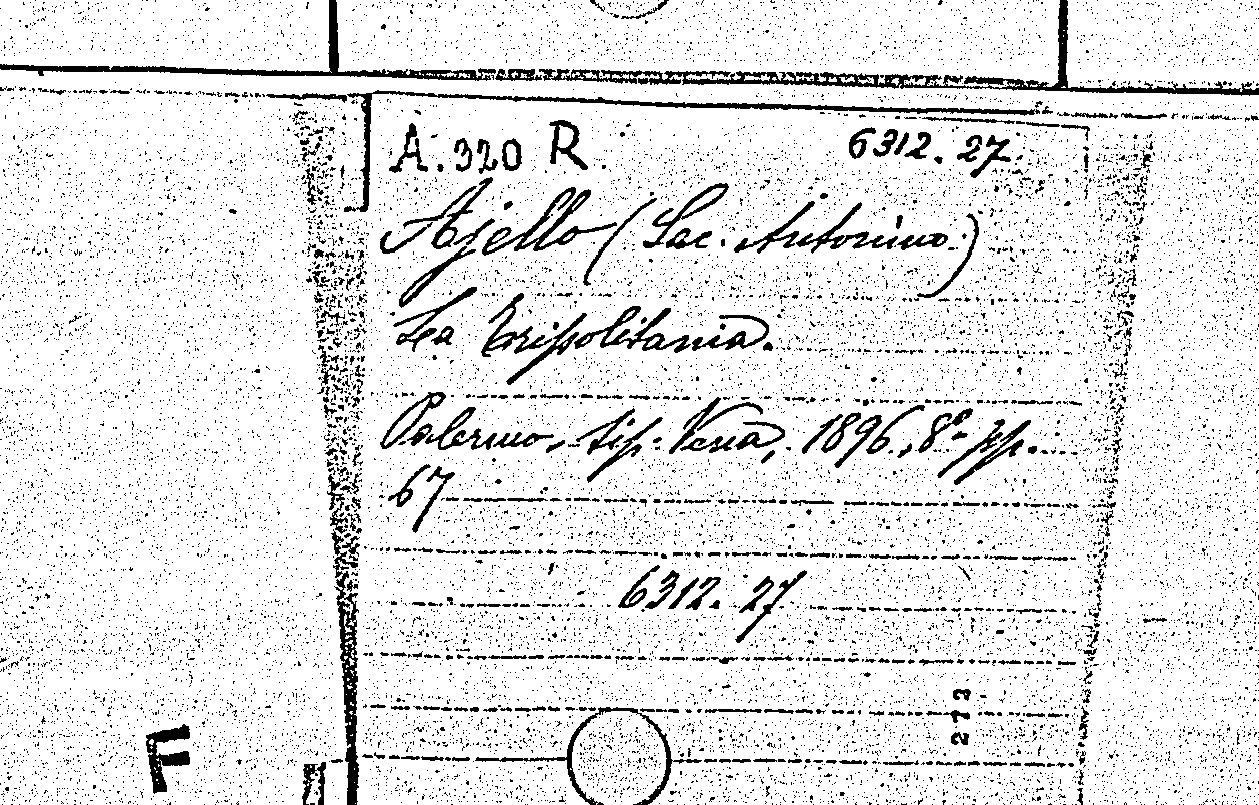 A. 320 R. 6312. 27.
Ajello (Sac. Antonino)
La Tripolitania.
Palermo, tip. Vena, 1896, 8º pp.
67
6312. 27
273
F